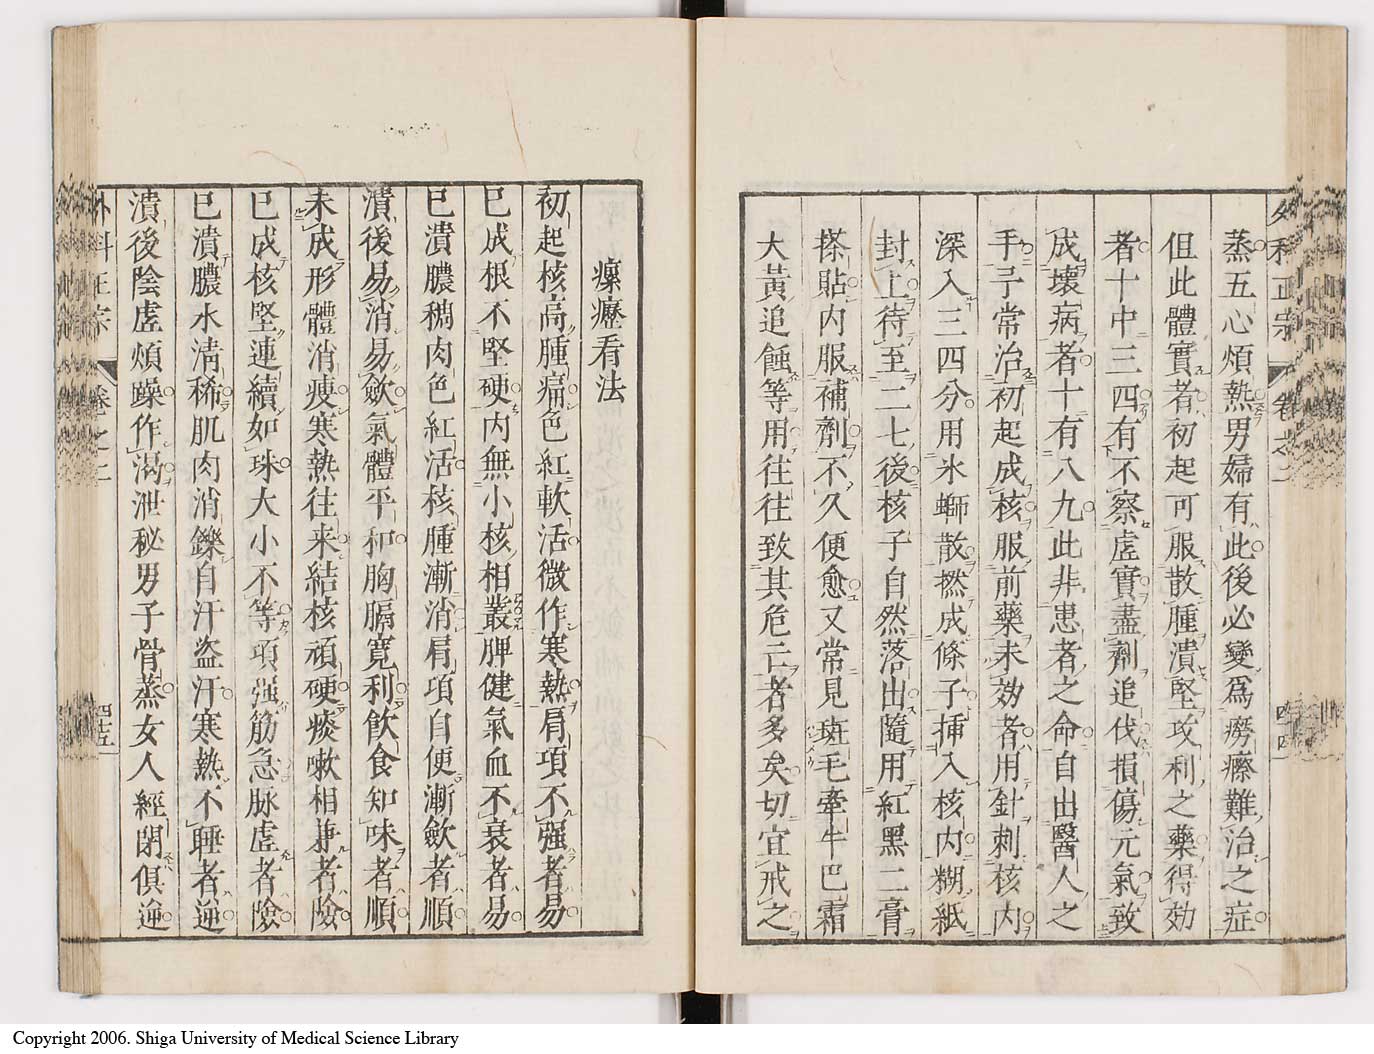 外科正宗 卷之二 四四
蒸五心煩熱男婦有此後必變爲癆瘵難治之症
但此體實者初起可服散腫潰堅攻利之藥得効
者十中三四有不察虛實盡劑追伐損傷元氣致
成壞病者十有八九此非患者之命自出醫人之
手予常治初起成核服前藥未効者用針刺核内
深入三四分用氷螄散撚成條子挿入核内糊紙
封上待至二七後核子自然落出隨用紅黑二膏
搽貼内服補劑不久便愈又常見斑毛牽牛巴霜
大黄追蝕等用往往致其危亡者多矣切宜戒之
瘰癧看法
初起核高腫痛色紅軟活微作寒熱肩項不强者易
已成根不堅硬内無小核相叢脾健氣血不衰者易
已潰膿稠肉色紅活核腫漸消肩項自便漸斂者順
潰後易消易斂氣體平和胸膈寛利飲食知味者順
未成形體消痩寒熱往来結核頑硬痰嗽相兼者險
已成核堅連續如珠大小不等項强筋急脉虛者險
已潰膿水清稀肌肉消鑠自汗盜汗寒熱不睡者逆
潰後陰虛煩躁作渴泄秘男子骨蒸女人經閉俱逆
外科正宗 卷之二 四十五
Copyright 2006. Shiga University of Medical Science Library